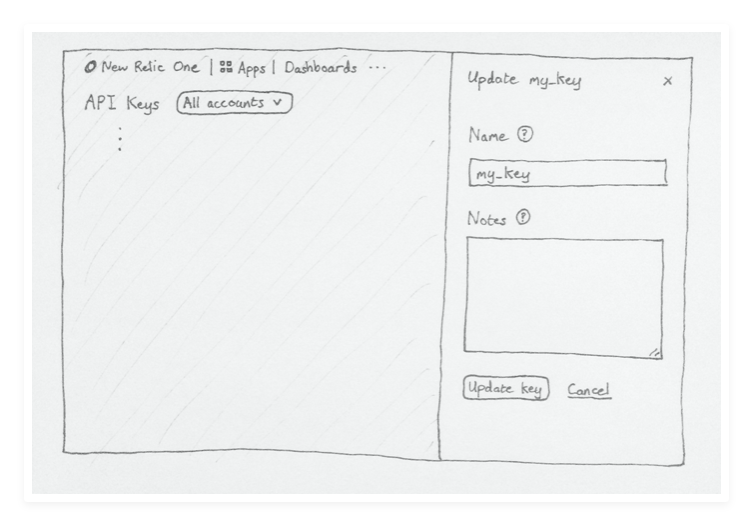 New Relic One | Apps | Dashboards ...
API Keys All accounts
Update my_key x
Name ?
my_key
Notes ?
Update key Cancel